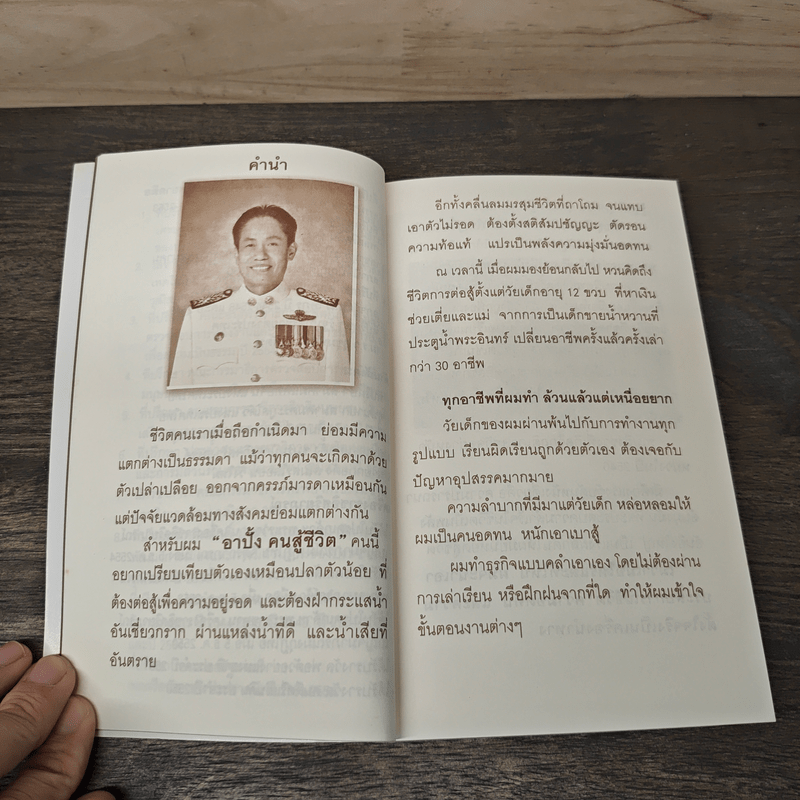 คำนำ
ชีวิตคนเราเมื่อถือกำเนิดมา ย่อมมีความ
แตกต่างเป็นธรรมดา แม้ว่าทุกคนจะเกิดมาด้วย
ตัวเปล่าเปลือย ออกจากครรภ์มารดาเหมือนกัน
แต่ปัจจัยแวดล้อมทางสังคมย่อมแตกต่างกัน
สำหรับผม “อาปั้ง คนสู้ชีวิต” คนนี้
อยากเปรียบเทียบตัวเองเหมือนปลาตัวน้อย ที่
ต้องต่อสู้เพื่อความอยู่รอด และต้องฝ่ากระแสน้ำ
อันเชี่ยวกราก ผ่านแหล่งน้ำที่ดี และน้ำเสียที่
อันตราย
อีกทั้งคลื่นลมมรสุมชีวิตที่ถาโถม จนแทบ
เอาตัวไม่รอด ต้องตั้งสติสัมปชัญญะ ตัดรอน
ความท้อแท้ แปรเป็นพลังความมุ่งมั่นอดทน
ณ เวลานี้ เมื่อผมมองย้อนกลับไป หวนคิดถึง
ชีวิตการต่อสู้ตั้งแต่วัยเด็กอายุ 12 ขวบ ที่หาเงิน
ช่วยเตี่ยและแม่ จากการเป็นเด็กขายน้ำหวานที่
ประตูน้ำพระอินทร์ เปลี่ยนอาชีพครั้งแล้วครั้งเล่า
กว่า 30 อาชีพ
ทุกอาชีพที่ผมทำ ล้วนแล้วแต่เหนื่อยยาก
วัยเด็กของผมผ่านพ้นไปกับการทำงานทุก
รูปแบบ เรียนผิดเรียนถูกด้วยตัวเอง ต้องเจอกับ
ปัญหาอุปสรรคมากมาย
ความลำบากที่มีมาแต่วัยเด็ก หล่อหลอมให้
ผมเป็นคนอดทน หนักเอาเบาสู้
ผมทำธุรกิจแบบคลำเอาเอง โดยไม่ต้องผ่าน
การเล่าเรียน หรือฝึกฝนจากที่ใด ทำให้ผมเข้าใจ
ขั้นตอนงานต่างๆ